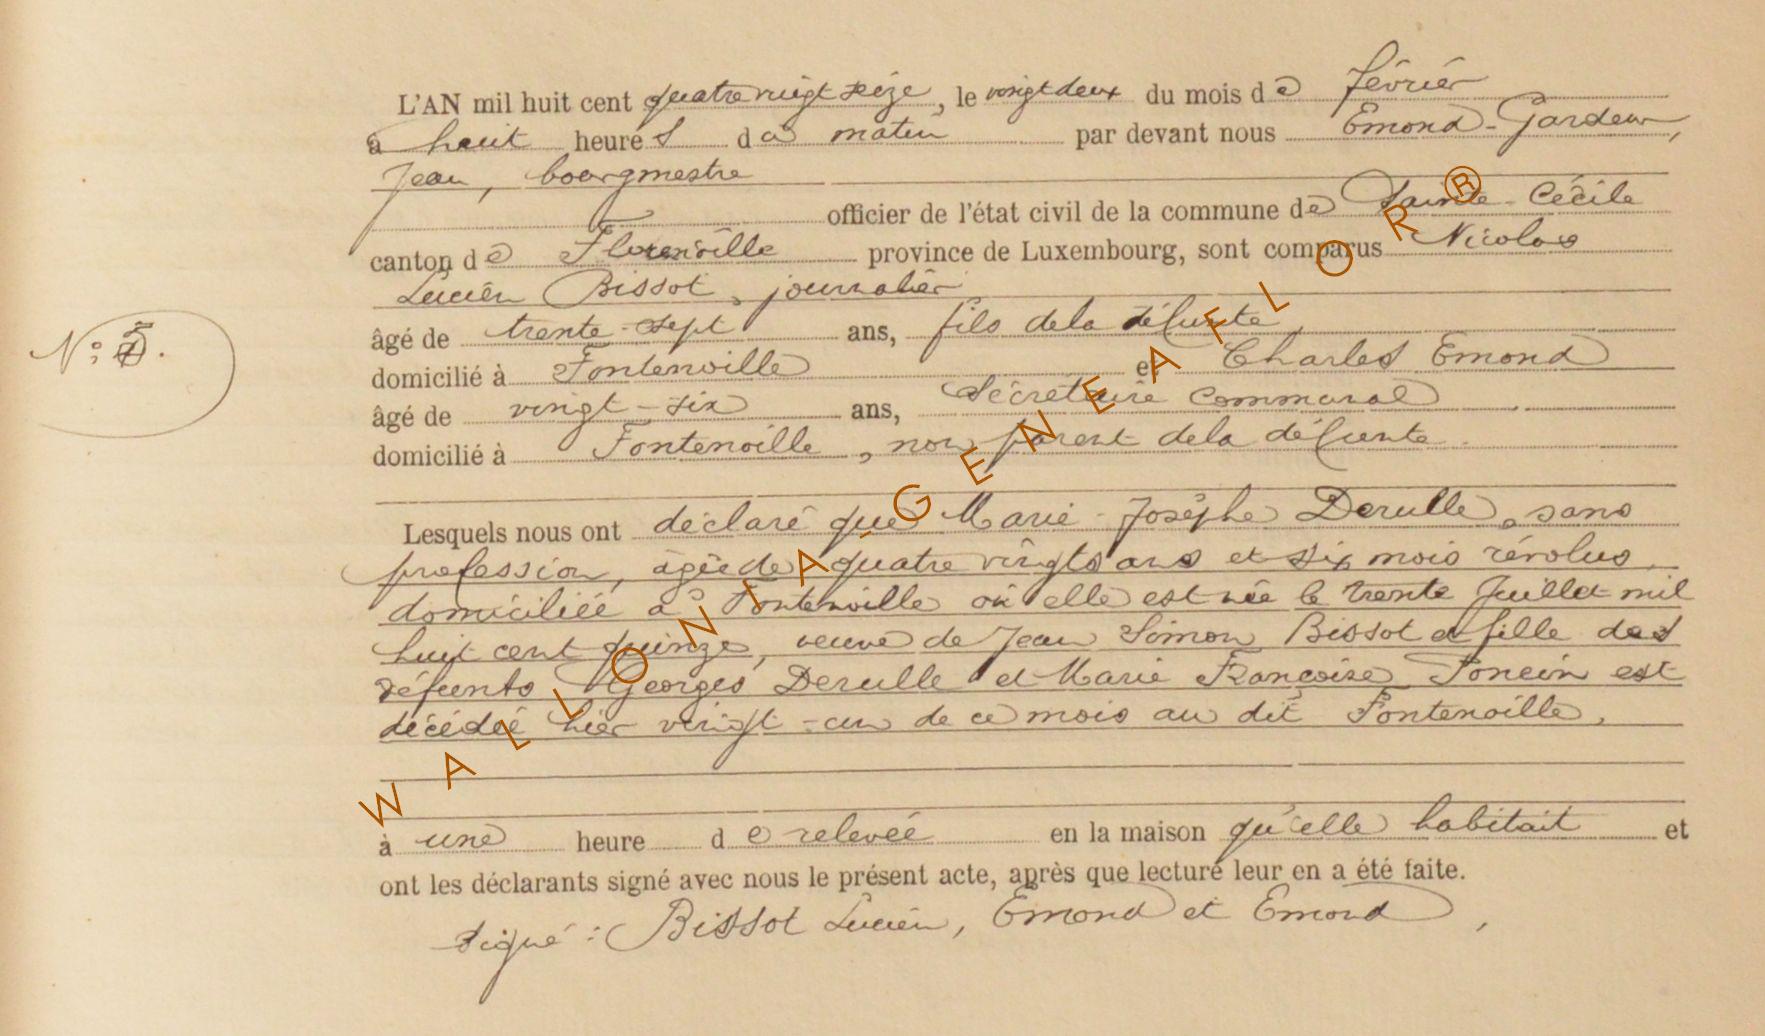 L'AN mil huit cent quatre vingt seize, le vingt deux du mois de février
à huit heures du matin par devant nous Emond-Gardeur,
Jean, bourgmestre
officier de l'état civil de la commune de Sainte-Cécile
canton de Florenville province de Luxembourg, sont comparus Nicolas
Lucien Bissot, journalier
âgé de trente-sept ans, fils de la défunte,
domicilié à Fontenoille et Charles Emond
âgé de vingt-six ans, Secrétaire Communal
domicilié à Fontenoille, non parent de la défunte.
N° 5.
Lesquels nous ont déclaré que Marie-Josèphe Derulle, sans
profession, âgée de quatre vingts ans et six mois révolus,
domiciliée à Fontenoille où elle est née le trente Juillet mil
huit cent quinze, veuve de Jean Simon Bissot et fille des
défunts Georges Derulle et Marie Françoise Poncin est
décédée hier vingt-un de ce mois au dit Fontenoille,
à une heure de relevée en la maison qu'elle habitait et
ont les déclarants signé avec nous le présent acte, après que lecture leur en a été faite.
signé : Bissot Lucien, Emond et Emond,
WALLONIA GENEAFLOR ®